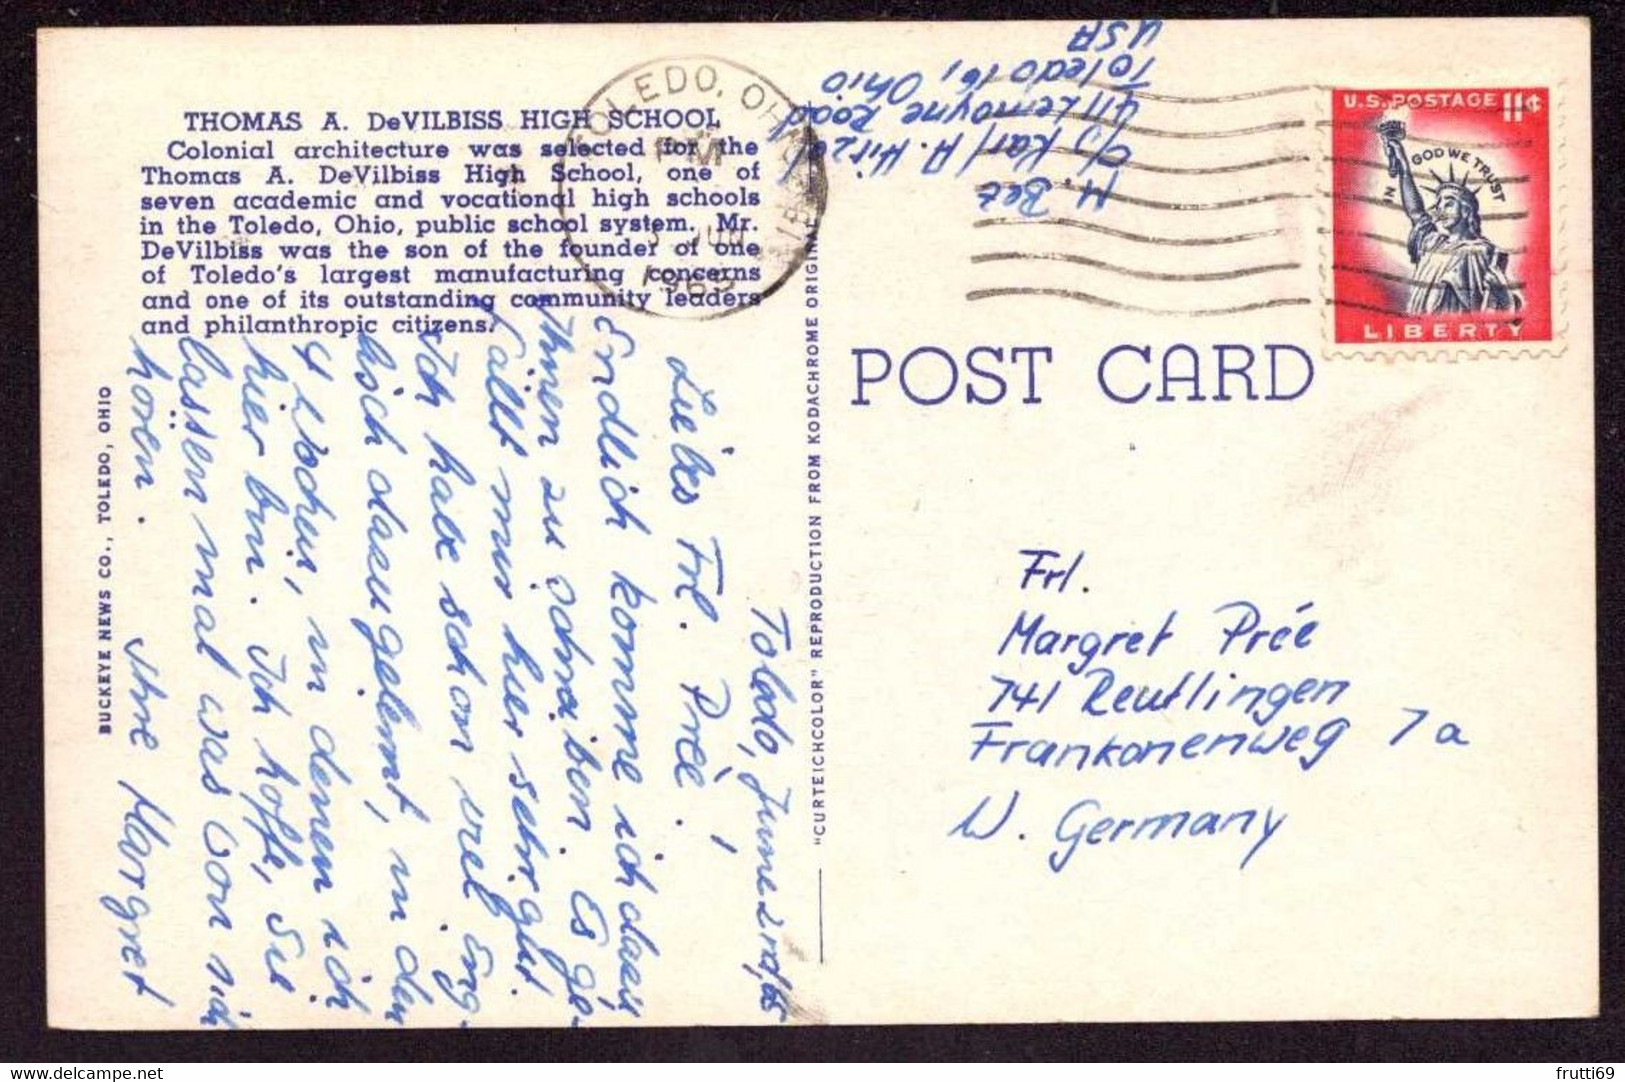 THOMAS A. DeVILBISS HIGH SCHOOL
Colonial architecture was selected for the
Thomas A. DeVilbiss High School, one of
seven academic and vocational high schools
in the Toledo, Ohio, public school system. Mr.
DeVilbiss was the son of the founder of one
of Toledo's largest manufacturing concerns
and one of its outstanding community leaders
and philanthropic citizens.
BUCKEYE NEWS CO., TOLEDO, OHIO
Toledo, June 2nd, 65
Liebes Frl. Prée!
Endlich komme ich dazu
Ihnen zu schreiben. Es ge-
fällt mir hier sehr gut.
Ich habe schon viel Eng-
lisch dazugelernt, in den
4 Wochen, in denen ich
hier bin. Ich hoffe, Sie
lassen mal was von sich
hören.
Ihre Margret
"CURTEICHCOLOR" REPRODUCTION FROM KODACHROME ORIGINAL
TOLEDO, OHIO
PM
JUN
1965
M.
c/o Karl A. Hirzel
411 Lemoyne Road
Toledo 16, Ohio
USA
U.S. POSTAGE 11¢
IN GOD WE TRUST
LIBERTY
POST CARD
Frl.
Margret Prée
741 Reutlingen
Frankonenweg 7a
W. Germany
frutti69
www.delcampe.net